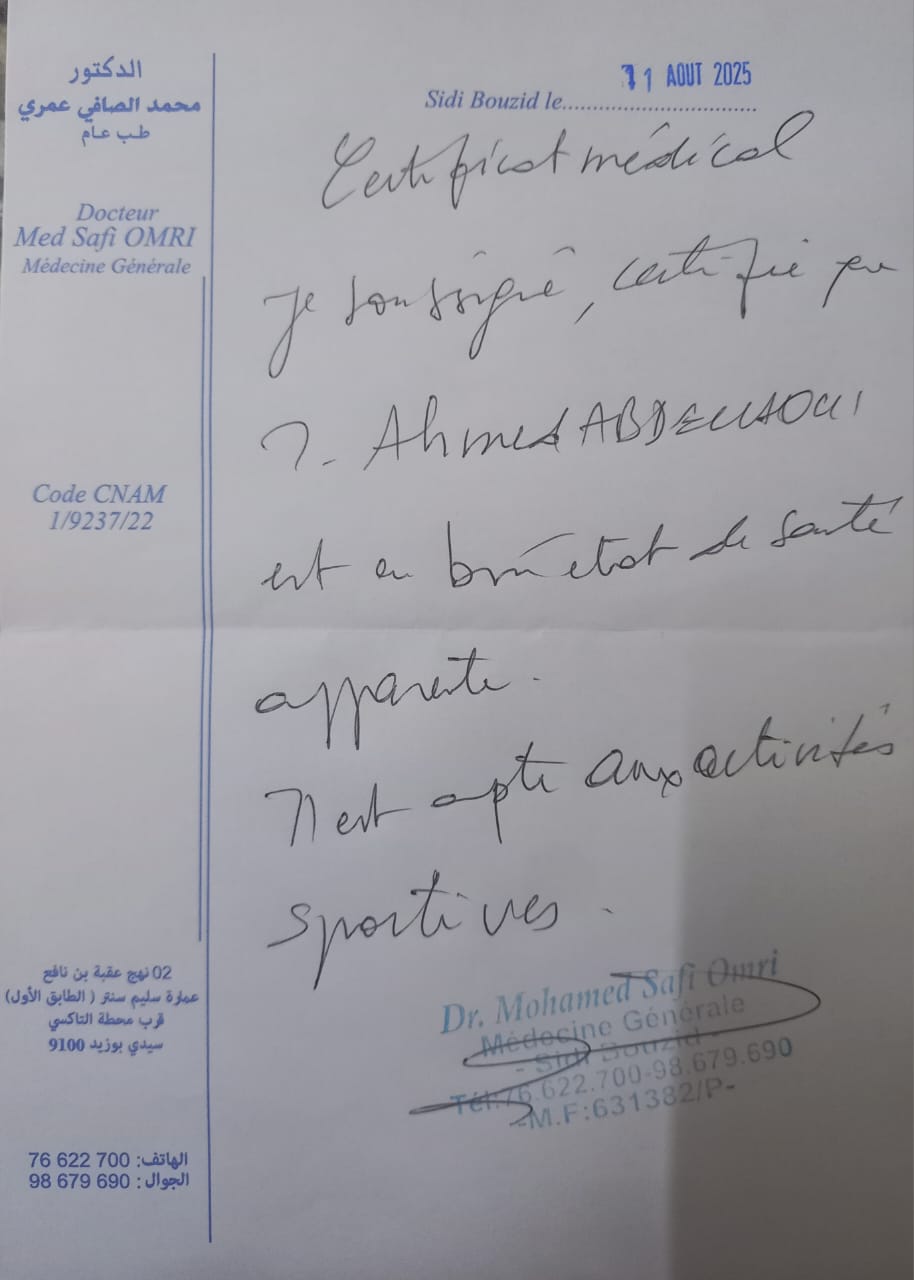 الدكتور
محمد الصافي عمري
طب عام
Docteur
Med Safi OMRI
Médecine Générale
Code CNAM
1/9237/22
02 نهج عقبة بن نافع
عمارة سليم سنتر ( الطابق الأول)
قرب محطة التاكسي
سيدي بوزيد 9100
الهاتف: 76 622 700
الجوال : 98 679 690
Sidi Bouzid le 1 AOUT 2025
Certificat médical
Je soussigné, certifie que
Ahmed
est en bon état de santé
apparente.
Il est apte aux activités
sportives.
Dr. Mohamed Safi Omri
Médecine Générale
- Sidi Bouzid -
Tél:76.622.700-98.679.690
-M.F:631382/P-